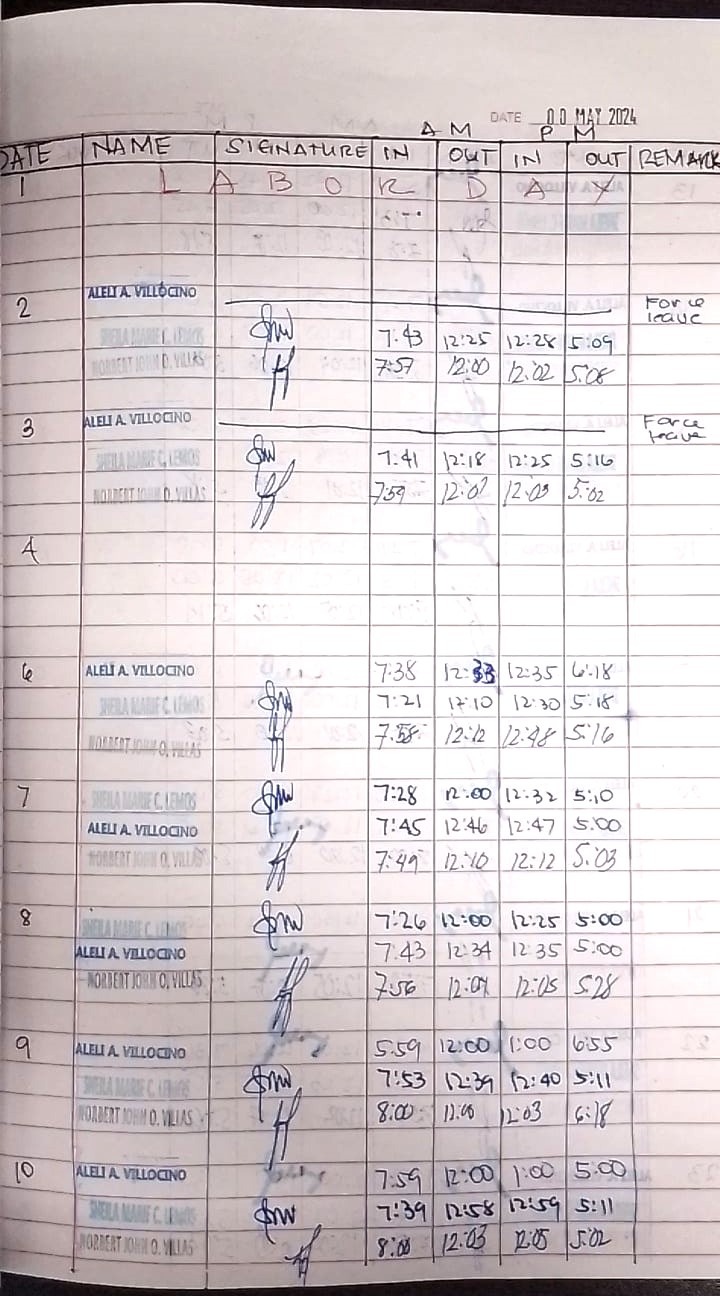 DATE 00 MAY 2024
A M P M
DATE NAME SIGNATURE IN OUT IN OUT REMARK
1 L A B O R D A Y
2 ALELI A. VILLOCINO Force leave
SHEILA MARIE C. LEMOS 7:43 12:25 12:28 5:09
NORBERT JOHN O. VILLAS 7:57 12:00 12:02 5:08
3 ALELI A. VILLOCINO Force leave
SHEILA MARIE C. LEMOS 7:41 12:18 12:25 5:16
NORBERT JOHN O. VILLAS 7:59 12:02 12:03 5:02
4
6 ALELI A. VILLOCINO 7:38 12:33 12:35 6:18
SHEILA MARIE C. LEMOS 7:21 12:10 12:30 5:18
NORBERT JOHN O. VILLAS 7:58 12:12 12:48 5:16
7 SHEILA MARIE C. LEMOS 7:28 12:00 12:32 5:10
ALELI A. VILLOCINO 7:45 12:46 12:47 5:00
NORBERT JOHN O. VILLAS 7:49 12:10 12:12 5:03
8 SHEILA MARIE C. LEMOS 7:26 12:00 12:25 5:00
ALELI A. VILLOCINO 7:43 12:34 12:35 5:00
NORBERT JOHN O. VILLAS 7:56 12:05 5:28
9 ALELI A. VILLOCINO 5:59 12:00 1:00 6:55
SHEILA MARIE C. LEMOS 7:53 12:39 12:40 5:11
NORBERT JOHN O. VILLAS 8:00 12:00 12:03 6:18
10 ALELI A. VILLOCINO 7:59 12:00 1:00 5:00
SHEILA MARIE C. LEMOS 7:39 12:58 12:59 5:11
NORBERT JOHN O. VILLAS 8:00 12:03 12:05 5:02